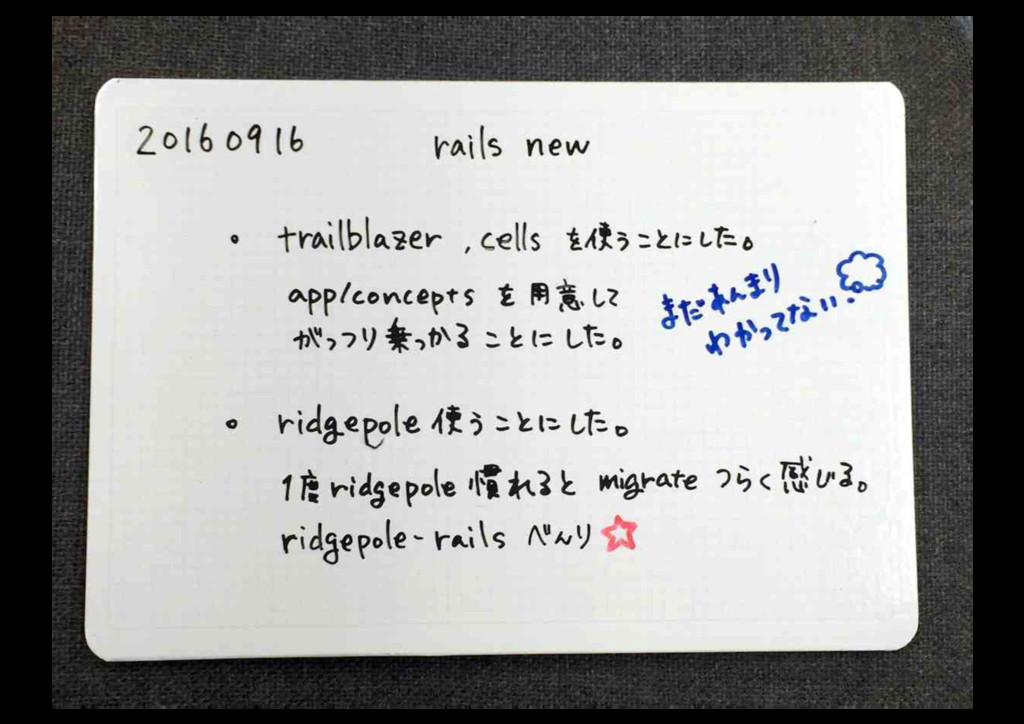 20160916 rails new
・ trailblazer , cells を使うことにした。
app/concepts を用意して
がっつり乗っかることにした。
まだあんまり
わかってない。
・ ridgepole 使うことにした。
1度ridgepole 慣れると migrate つらく感じる。
ridgepole-rails べんり☆